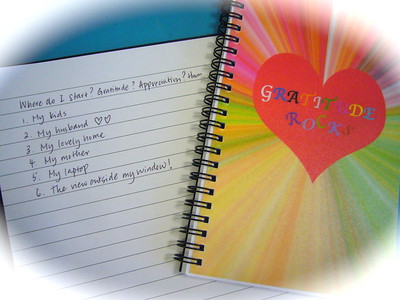 Where do I start? Gratitude? Appreciation? Hmm
1. My kids
2. My husband ♡♡
3. My lovely home
4. My mother
5. My laptop
6. The view outside my window!
GRATITUDE
ROCKS